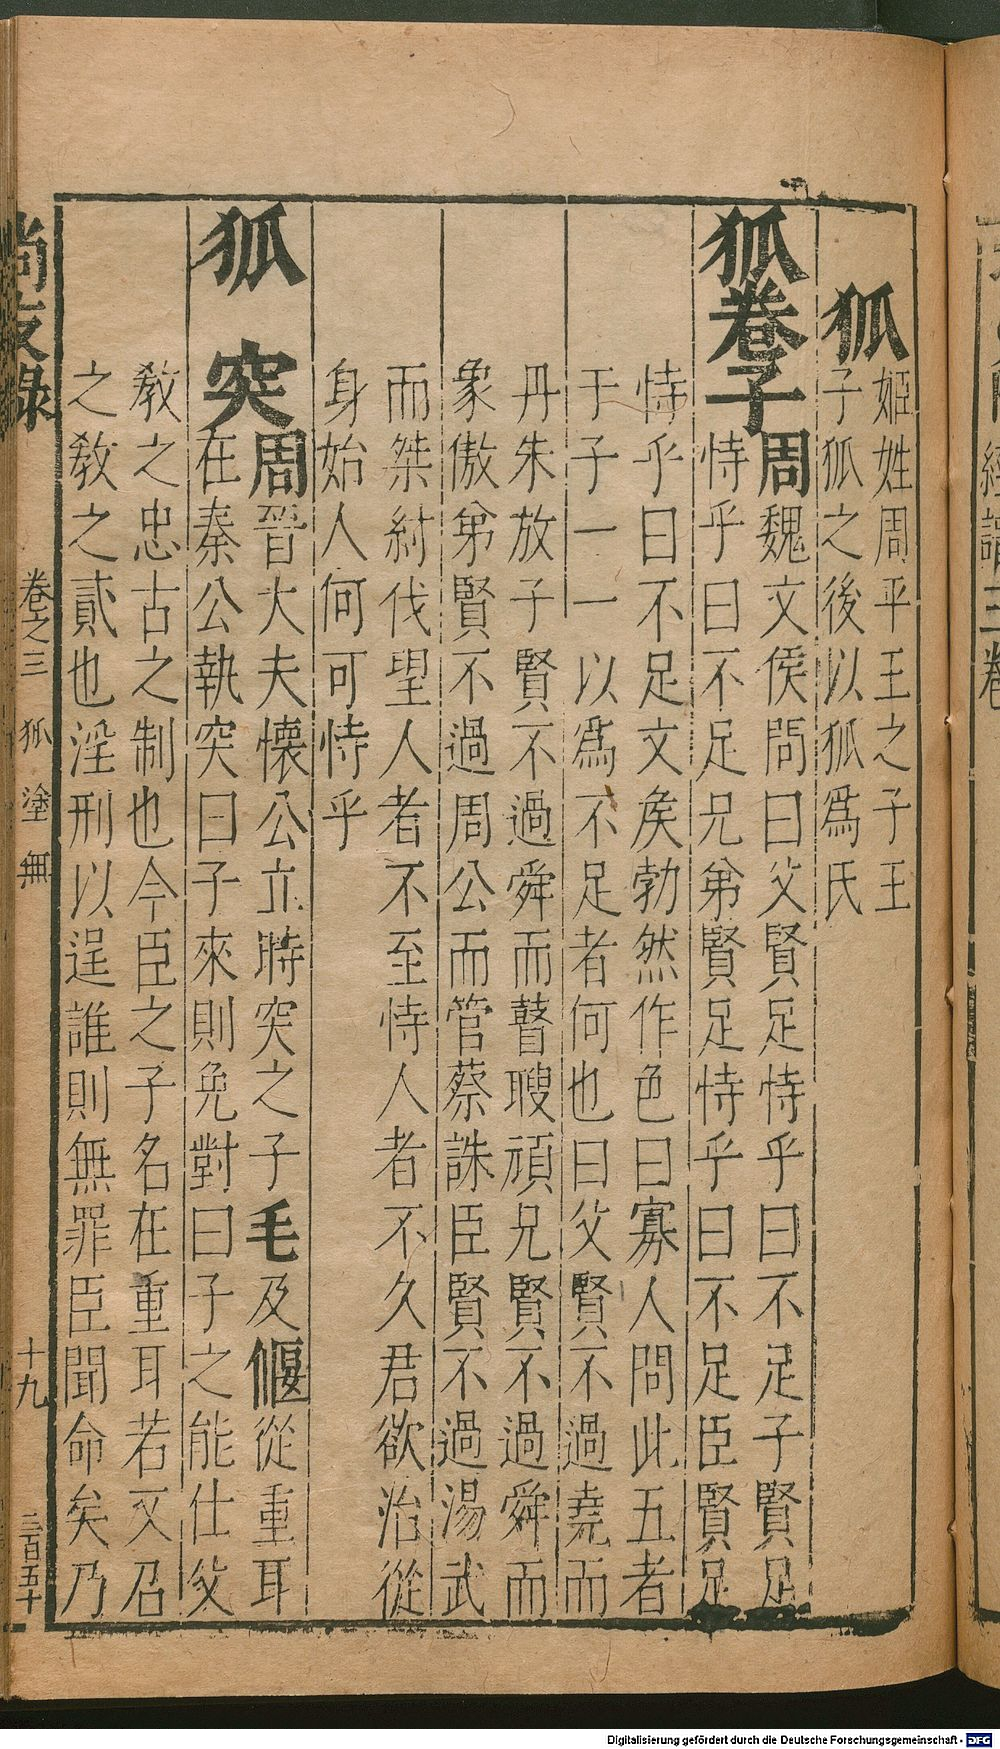 狐
姬姓周平王之子王
子狐之後以狐爲氏
狐卷子
周魏文侯問曰父賢足恃乎曰不足子賢足
恃乎曰不足兄弟賢足恃乎曰不足臣賢足
恃乎曰不足文矦勃然作色曰寡人問此五者
于子一一以爲不足者何也曰父賢不過堯而
丹朱放子賢不過舜而瞽瞍頑兄賢不過舜而
象傲弟賢不過周公而管蔡誅臣賢不過湯武
而桀紂伐望人者不至恃人者不久君欲治從
身始人何可恃乎
狐突
周晉大夫懷公立時突之子毛及偃從重耳
在秦公執突曰子來則免對曰子之能仕父
教之忠古之制也今臣之子名在重耳若又召
之教之貳也淫刑以逞誰則無罪臣聞命矣乃
尚友錄
卷之三 狐 塗 無
十九
三百五十
三卷
Digitalisierung gefördert durch die Deutsche Forschungsgemeinschaft - DFG